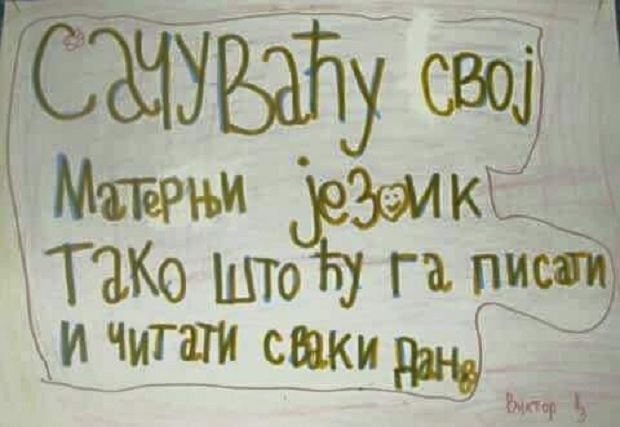 Сачуваћу свој
Матерњи језик
Тако што ћу га писати
и читати сваки дан
Виктор